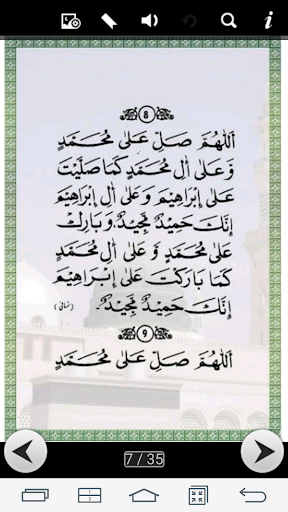 8
اَللّٰهُمَّ صَلِّ عَلٰى مُحَمَّدٍ
وَّعَلٰى اٰلِ مُحَمَّدٍ كَمَا صَلَّيْتَ
عَلٰى اِبْرَاهِيْمَ وَعَلٰى اٰلِ اِبْرَاهِيْمَ
اِنَّكَ حَمِيْدٌ مَّجِيْدٌ وَّبَارِكْ
عَلٰى مُحَمَّدٍ وَّعَلٰى اٰلِ مُحَمَّدٍ
كَمَا بَارَكْتَ عَلٰى اِبْرَاهِيْمَ
اِنَّكَ حَمِيْدٌ مَّجِيْدٌ. (نسائی)
9
اَللّٰهُمَّ صَلِّ عَلٰى مُحَمَّدٍ
7 / 35